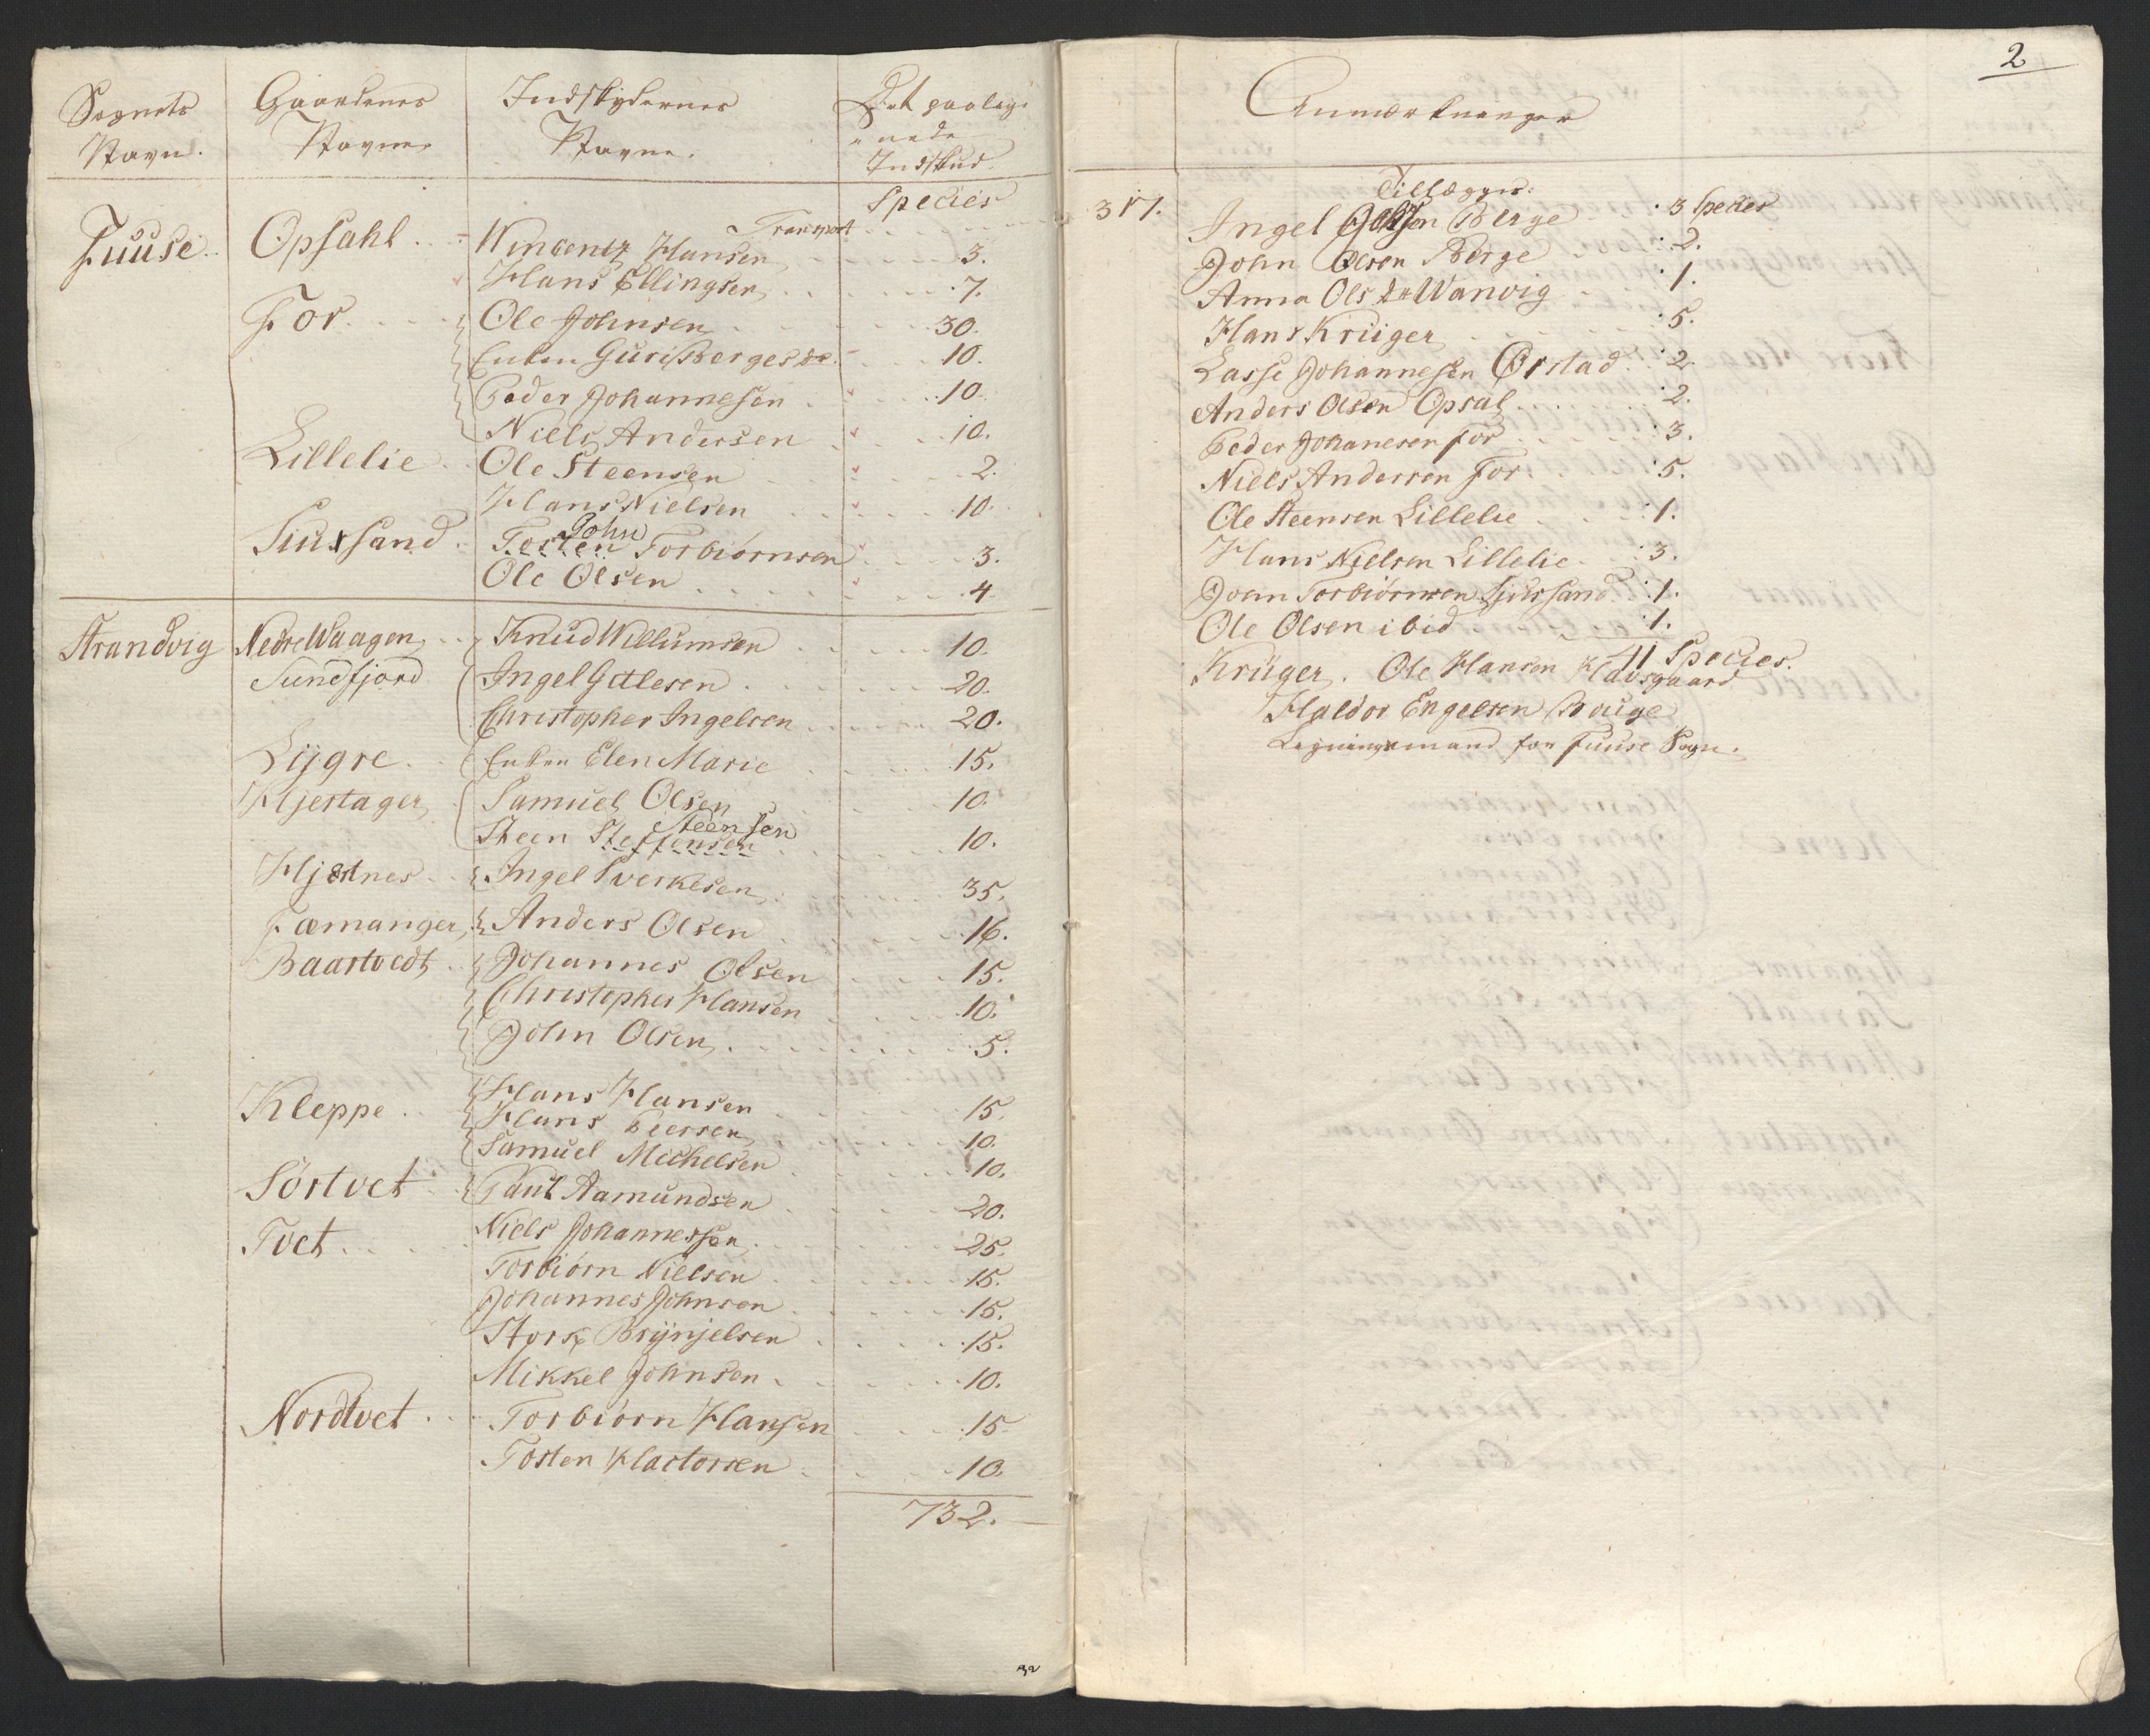 Sognets Navn. Gaardenes Navne. Indskydernes Navne. Det paalagnede Indskud
Species
Transport
Fuuse Opsahl Winbentz Hansen 3.
Hans Ellingsen 7.
For Ole Johnsen 30.
Enken Guri Bergesdr. 10.
Peder Johannesen 10.
Niels Andersen 10.
Lillelie Ole Steensen 2.
Hans Nielsen 10.
Siursand Tosten John Torbiørnsen 3.
Ole Olsen 4
Strandvig Nedre Waagen Knud Willumsen 10.
Sundfjord Ingel Gitlesen 20.
Christopher Ingelsen 20.
Lygre Enken Elen Marie 15.
Hjestager Samuel Olsen 10.
Steen Steffensen Steensen 10.
Hjestnes Ingel Sverkesen 35.
Fæmanger Anders Olsen 16.
Baartvedt Johannes Olsen 15.
Christopher Hansen 10.
John Olsen 5.
Kleppe Hans Hansen 15.
Hans Peersen 10.
Samuel Michelsen 10.
Sørtvet Paul Aamundsen 20.
Tvet Niels Johannessen 25.
Torbiørn Nielsen 15.
Johannes Johnsen 15.
Stork Brynjelsen 15.
Mikkel Johnsen 10.
Nordtvet Torbiørn Hansen 15
Tosten Klastorsen 10.
732.
32
2
Anmærkninger
317. Tillægges:
Ingel Olsen Berge 3 Species
John Olsen Berge 2.
Anna Olsdr Wanvig 1.
Hans Krüger 5.
Lasse Johannesen Ørstad 2.
Anders Olsen Opsal 2.
Peder Johanesen For 3.
Niels Andersen For 5.
Ole Steensen Lillelie 1.
Hans Nielsen Lillelie 3.
John Torbiørnsen Siursand 1.
Ole Olsen ibid 1.
41 Species.
Krüger. Ole Hansen Kladsgaard
Haldor Engelsen Bauge
Ligningsmænd for Fuuse Sogn.